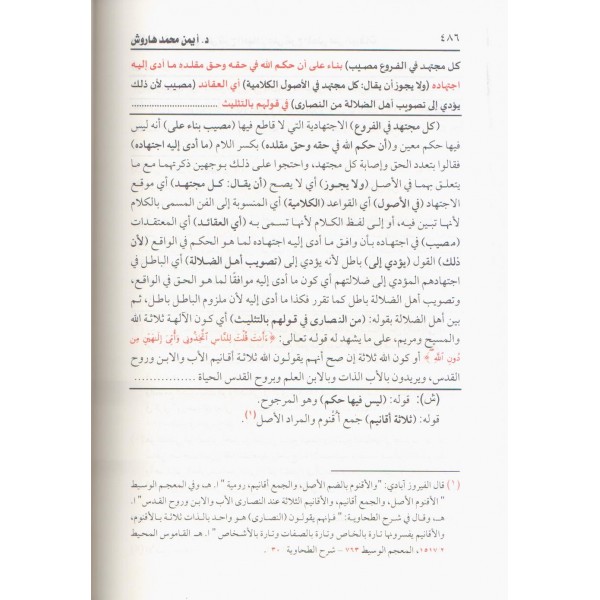 ٤٨٦ د. أيمن محمد هاروش
كل مجتهد في الفروع مصيب) بناء على أن حكم الله في حقه وحق مقلده ما أدى إليه
اجتهاده (ولا يجوز أن يقال: كل مجتهد في الأصول الكلامية) أي العقائد (مصيب لأن ذلك
يؤدي إلى تصويب أهل الضلالة من النصارى) في قولهم بالتثليث ..................................
(كل مجتهد في الفروع) الاجتهادية التي لا قاطع فيها (مصيب بناء على) أنه ليس
فيها حكم معين و(أن حكم الله في حقه وحق مقلده) بكسر اللام (ما أدى إليه اجتهاده)
فقالوا بتعدد الحق وإصابة كل مجتهد، واحتجوا على ذلك بوجهين ذكرتهما مع ما
يتعلق بهما في الأصل (ولا يجوز) أي لا يصح (أن يقال: كل مجتهد) أي موقع
الاجتهاد (في الأصول) أي القواعد (الكلامية) أي المنسوبة إلى الفن المسمى بالكلام
لأنها تبين فيه، أو إلى لفظ الكلام لأنها تسمى به (أي العقائد) أي المعتقدات
(مصيب) في اجتهاده بأن وافق ما أدى إليه اجتهاده لما هو الحكم في الواقع (لأن
ذلك) القول (يؤدي إلى) باطل لأنه يؤدي إلى (تصويب أهل الضلالة) أي الباطل في
اجتهادهم المؤدي إلى ضلالتهم أي كون ما أدى إليه موافقًا لما هو الحق في الواقع،
وتصويب أهل الضلالة باطل كما تقرر فكذا ما أدى إليه لأن ملزوم الباطل باطل، ثم
بين أهل الضلالة بقوله: (من النصارى في قولهم بالتثليث) أي كون الآلهة ثلاثة الله
والمسيح ومريم، على ما يشهد له قوله تعالى: ﴿ءَأَنتَ قُلْتَ لِلنَّاسِ ٱتَّخِذُونِى وَأُمِّىَ إِلَـٰهَيْنِ مِن
دُونِ ٱللَّهِ﴾ أو كون الله ثلاثة إن صح أنهم يقولون الله ثلاثة أقانيم الأب والابن وروح
القدس، ويريدون بالأب الذات وبالابن العلم وبروح القدس الحياة ................
(ش): قوله: (ليس فيها حكم) وهو المرجوح.
قوله: (ثلاثة أقانيم) جمع أُقْنوم والمراد الأصل(١).
(١) قال الفيروز آبادي: "والأقنوم بالضم الأصل، والجمع أقانيم، رومية" ا. هـ وفي المعجم الوسيط
"الأقنوم الأصل، والجمع أقانيم، والأقانيم الثلاثة عند النصارى الأب والابن وروح القدس" ا.
هـ، وقال في شرح الطحاوية: "فإنهم يقولون (النصارى) هو واحد بالذات ثلاثة بالأقنوم،
والأقانيم يفسرونها تارة بالخاص وتارة بالصفات وتارة بالأشخاص" ا. هـ القاموس المحيط
٢ ١٥١٧، المعجم الوسيط ٧٦٣ – شرح الطحاوية ٣٠ .